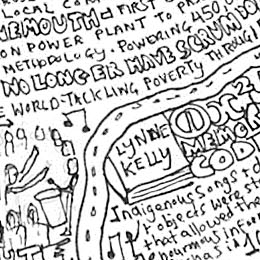 LOCAL COM
EMOUTH FIRST
ON POWER PLANT TO PA
METHODOLOGY. POWERING 450,0
NO LONGER HAVE SCRUM DO
E WORLD-TACKLING POVERTY THROUGH
LYNNE
KELLY
MEMORY
CODE
Indigenous songs + d
r objects were st
that allowed the
enourmous infor
has is